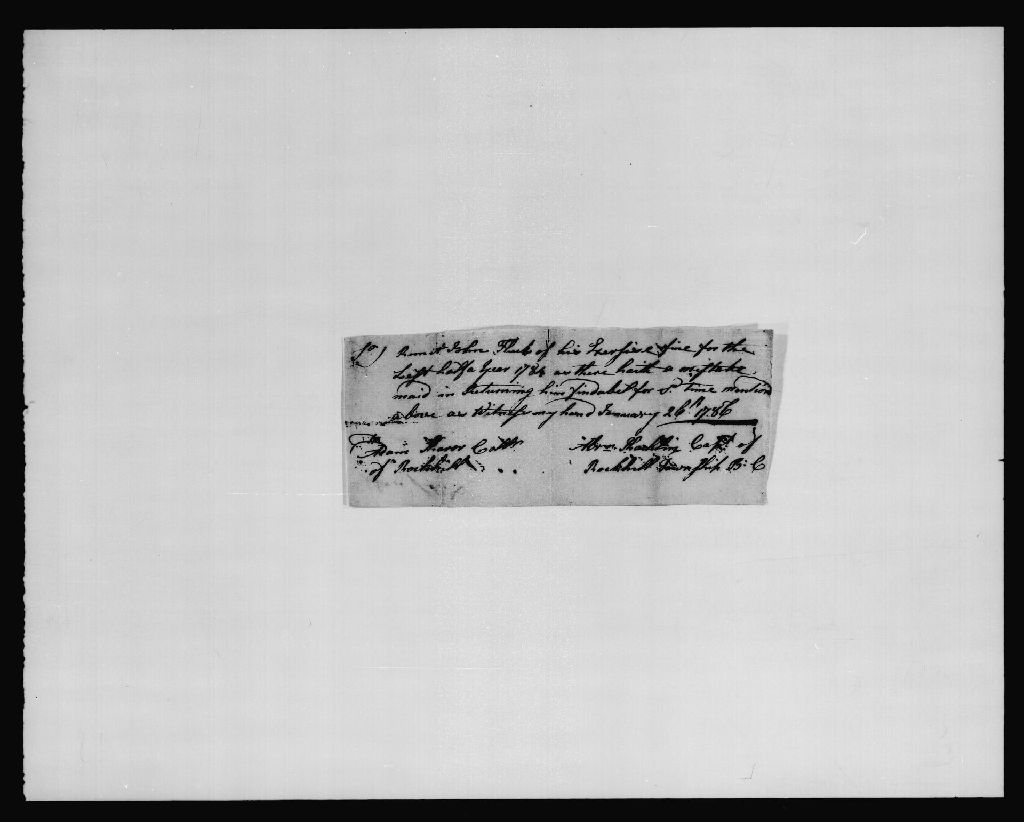 Sr) Remit John Fluck of his Exersise fine for the
Last half a Year 1784 as there hath a mistake
maid in Returning him for Sd time mention
above as Witness my hand January 26th 1786
To Adam Shaver
of Rockhill
Abrm Capt of
Rockhill Township B: C